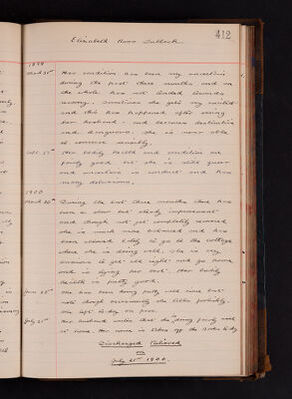 412
Elizabeth Ross Tulloch
1899
March 31st Her condition has been very uncertain
during the past three months and on
the whole has not tended towards
recovery. Sometimes she gets very excited
and this has happened after seeing
her husband and becomes destructive
and dangerous. She is never able
to converse sensibly.
Her bodily health and condition are
fairly good but she is still queer
and uncertain in conduct and has
many delusions.
1900
March 30th During the last three months there has
been a slow but steady improvement
and though not yet completely recovered
she is much more balanced and has
been allowed lately to go to the cottage
where she is doing well. She is very
anxious to get all right and go home
and is trying her best. Her bodily
health is fairly good.
June 25th She has been keeping fairly well since but
not
She left today on pass.
July 21st Her husband writes that she is doing fairly well
at home. Her name is taken off the Books today
Discharged Relieved
on
July 21st 1900.